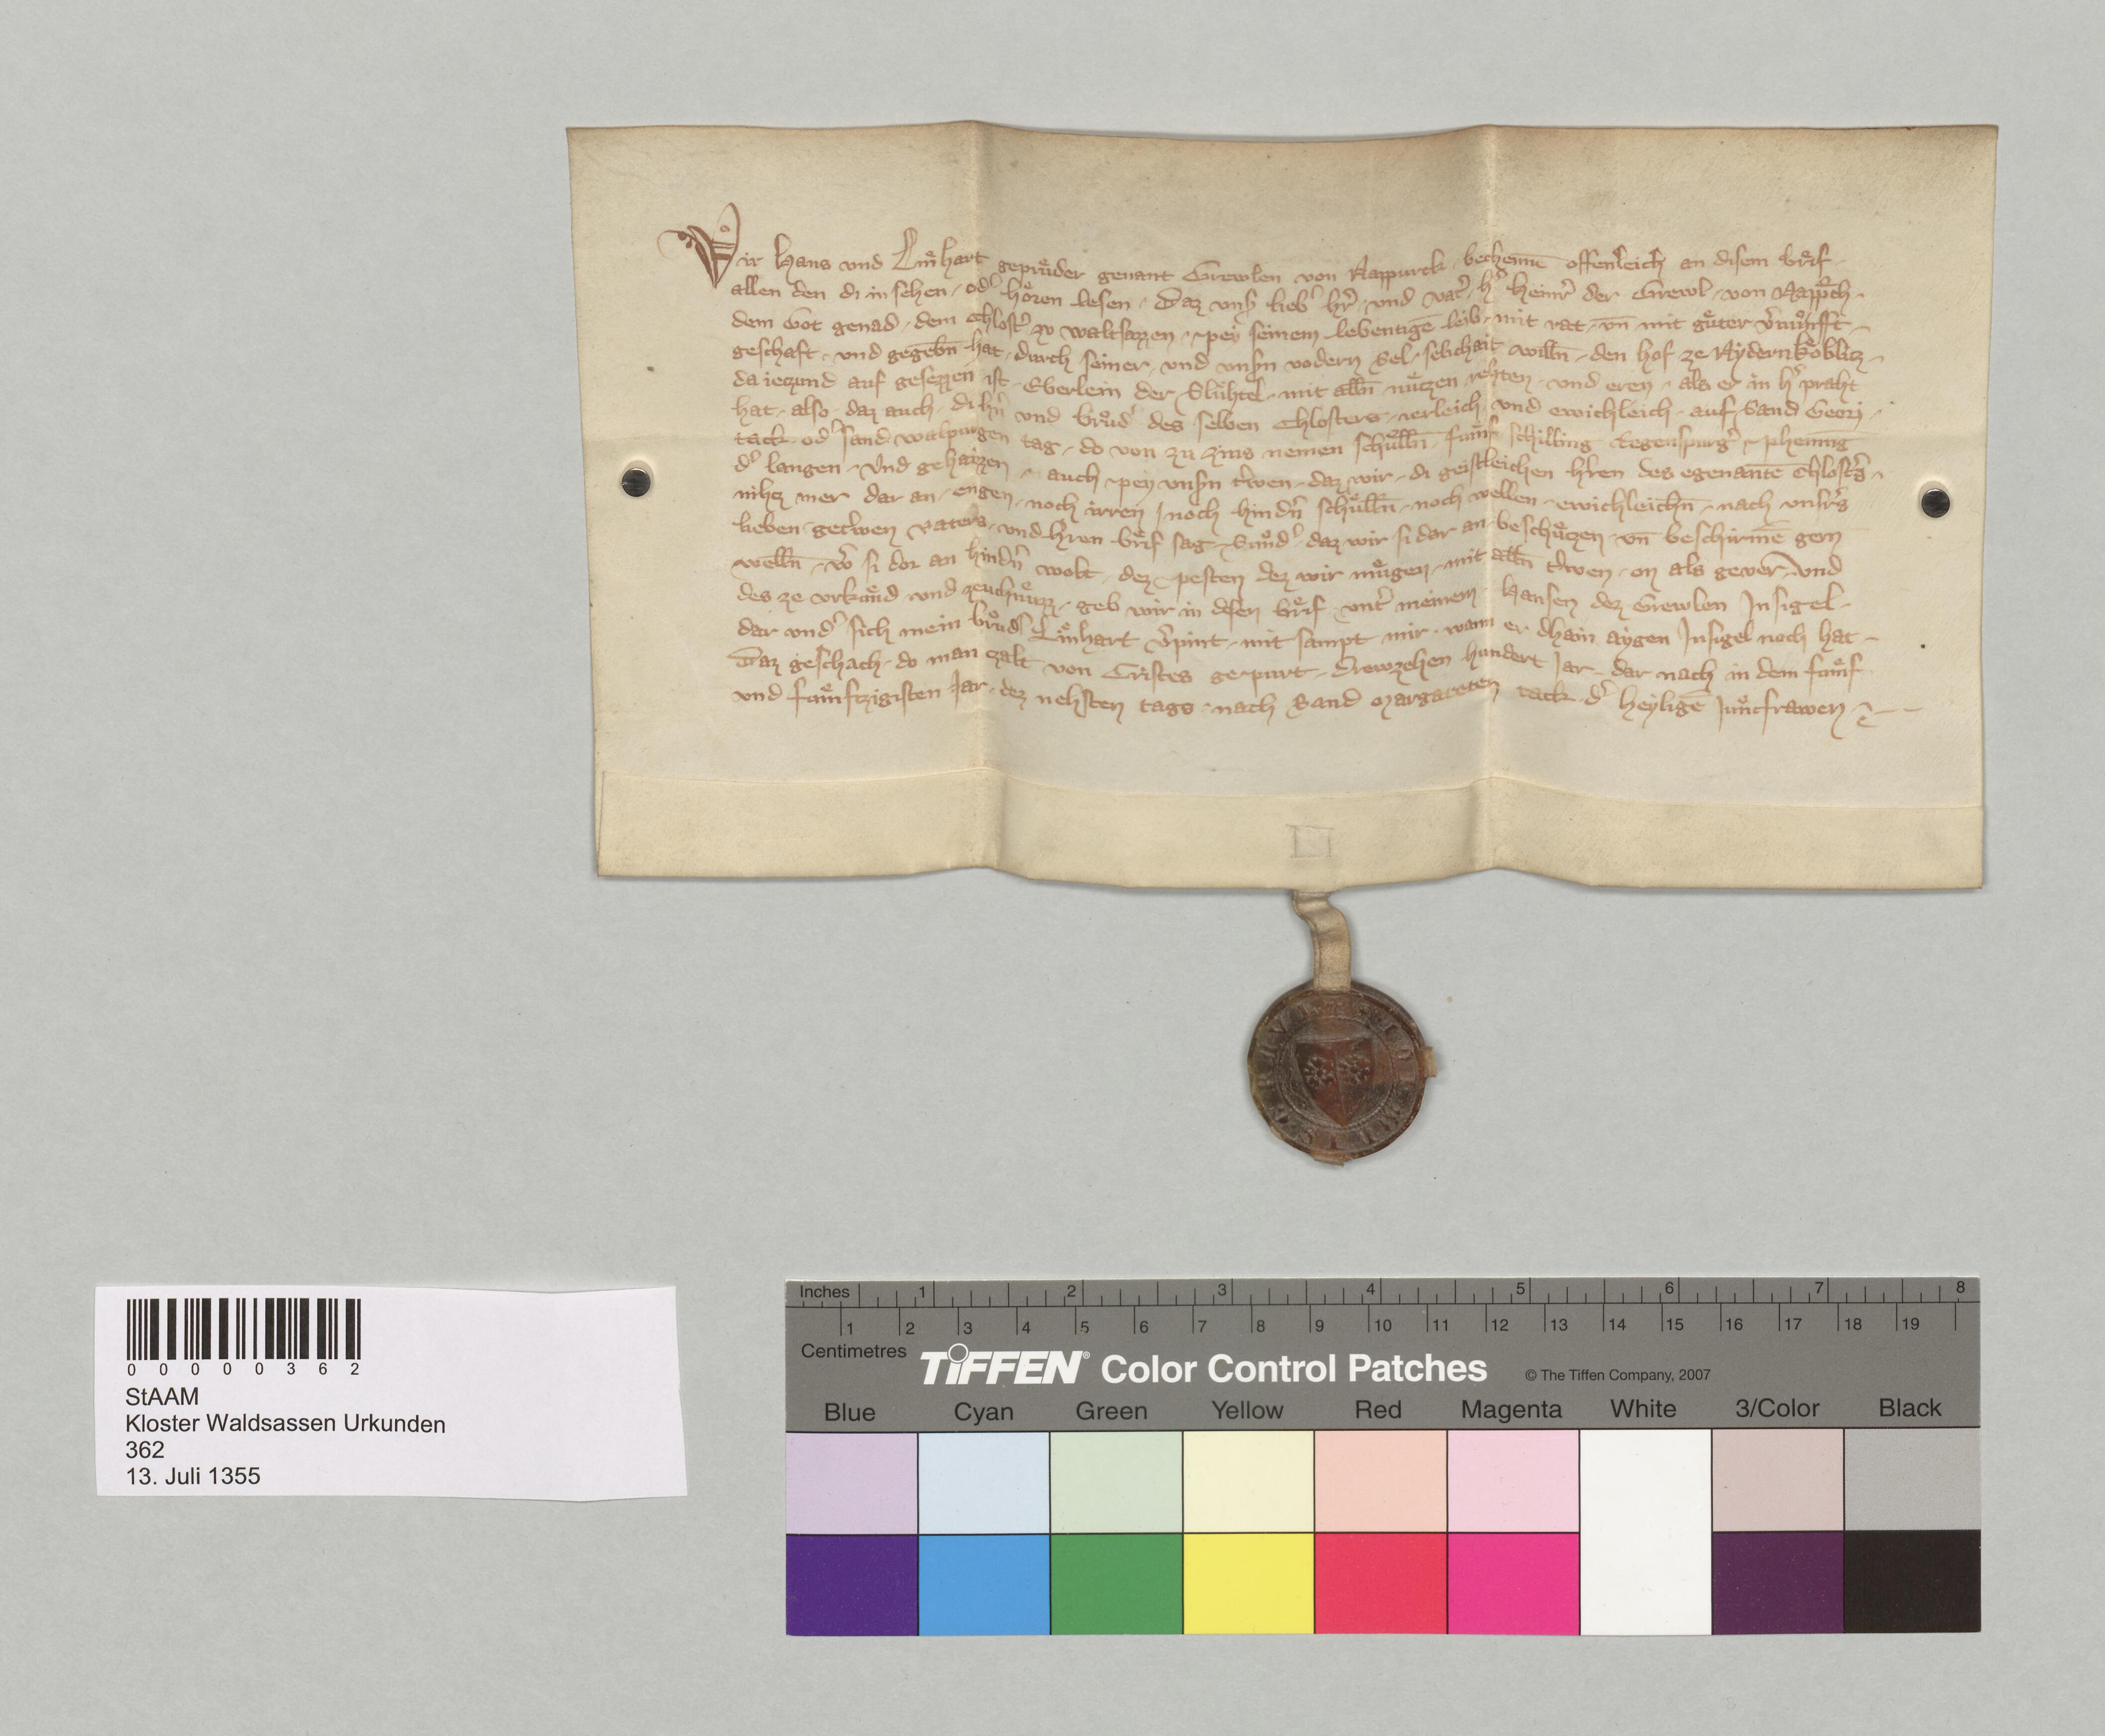 Wir Hans vnd Linͤhart gepruͤder genant Grewlen von Rappurck bechennē offenleich an disem brͤif
allen den di in sehen od᾽ hoͤren lesen Daz vns᾽ lieb᾽ hr᾽ vnd vat᾽ h᾽ Heinr᾽ der Grewl von
dem Got genad dem chlost᾽ zv waltsazzen pey seinem lebentigē leib mit rat vn̄ mit guͤter
geschaft vnd gegebn̄ hat durch seiner vnd vnsn̄ vodern Sel selichait willn̄ den hof ze Nydernkoͤblicz
da ieczund auf gesezzen ist Eberlein der Sluͤhtel mit alln̄ nuͤczen rehten vnd eren als er in h᾽ praht
hat also daz auch di hn᾽ vnd bruͦd᾽ des selben Chlosters verleich vnd ewichleich auf Sand Georj
tack od᾽ sand walpurgen tag do von zu zins nemen schuͤlln̄ fuͤmf schilling Regenspurg᾽ phennīg
d᾽ langen Vnd gehaizzen auch pey vnsn̄ trewen daz wir di geistleichen hͤren des egenantē Chlost᾽s
nihcz mer dar an engen noch irren noch hindn᾽ schuͤlln̄ noch wellen ewichleichn̄ nach vnsr᾽s
lieben getrwen vaters vnd hren brͤif sag Suͦnd᾽ daz wir si dar an beschuͤczen vn̄ beschirmē gern
welln̄ w᾽ si dor an hindn᾽ wolt dez pesten dez wir muͤgen mit alln̄ trwen on als gever Vnd
des ze vrkuͤnd vnd zeuchnuͤzz geb wir in disen brͤif vnt᾽ meinem Hansen dez Grewlen Insigel
dar vnd᾽ sich mein bruͦd᾽ Linͤhart v᾽pint mit sampt mir wann er dhain aygen Insigel noch hat
Daz geschach do man czalt von Cristes gepurt Drewzehen hundert Jar dar nach in dem fuͤmf
vnd fuͤmfczigisten Jar dez nehsten tags nach Sand Margareten tack d᾽ heyligē Juncfrawen
0 0 0 0 0 3 6 2
StAAM
Kloster Waldsassen Urkunden
362
13. Juli 1355
Inches 1 2 3 4 5 6 7 8
1 2 3 4 5 6 7 8 9 10 11 12 13 14 15 16 17 18 19
Centimetres
TIFFEN® Color Control Patches © The Tiffen Company, 2007
Blue Cyan Green Yellow Red Magenta White 3/Color Black